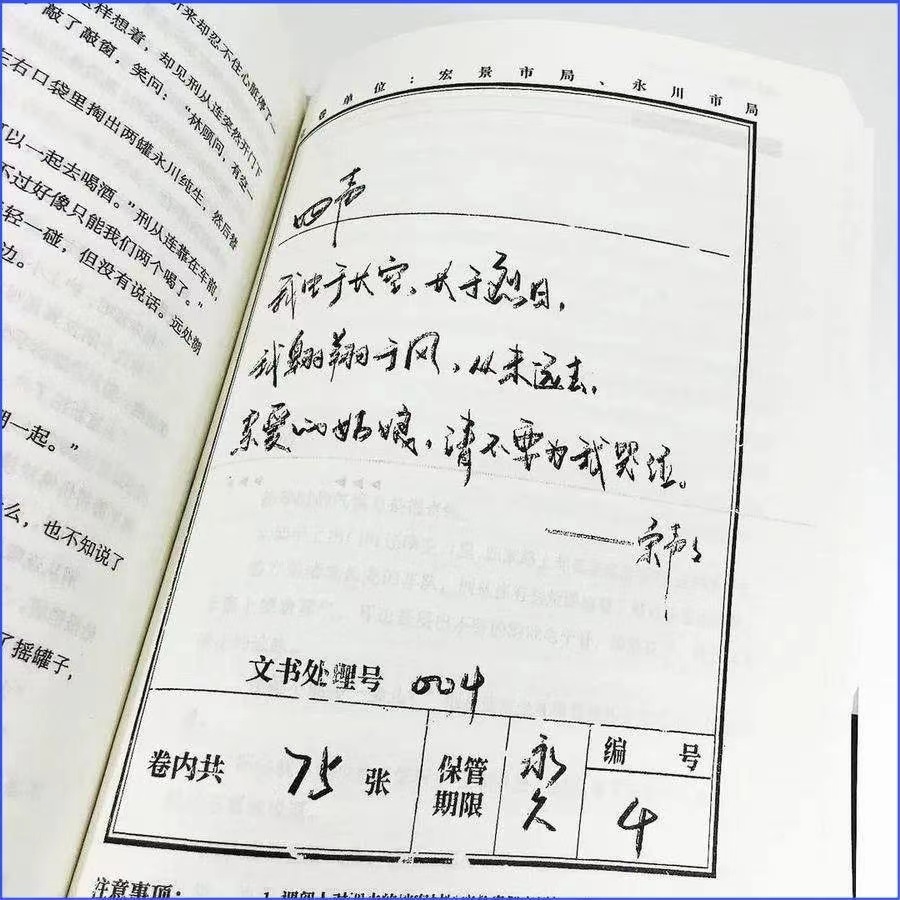 来却忍不住心脏停了一
样想着，却见刑从连突然开门下
敲了敲窗，笑问：“林顾问，有空一
左右口袋里掏出两罐永川纯生，然后
可以一起去喝酒。”刑从连靠在车前，
不过好像只能我们两个喝了。”
轻一碰，但没有说话。远处
边。
一起。”
么，也不知说了
了摇罐子，
卷单位：宏景市局、永川市局
四声
我生于长空、长于烈日，
我翱翔于风、从未远去，
亲爱的姑娘，请不要为我哭泣。
——宋声声
文书处理号 004
卷内共 75 张
保管期限
永久
编号
4
注意事项：